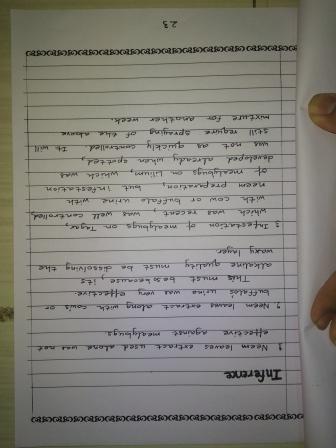 Inference
1 Neem leaves extract used alone was not
effective against mealybugs.
2 Neem leaves extract along with cow's or
buffalo's urine was very effective.
This must be because, its
alkaline quality must be dissolving the
waxy layer
3 Infestation of mealybugs on Tagar,
which was recent, was well controlled,
with cow or buffalo urine with
neem preparation, but infestation
of mealybugs on Lilium, which was
developed already when spotted,
was not as quickly controlled. It will
still require spraying of the above
mixture for another week.
23